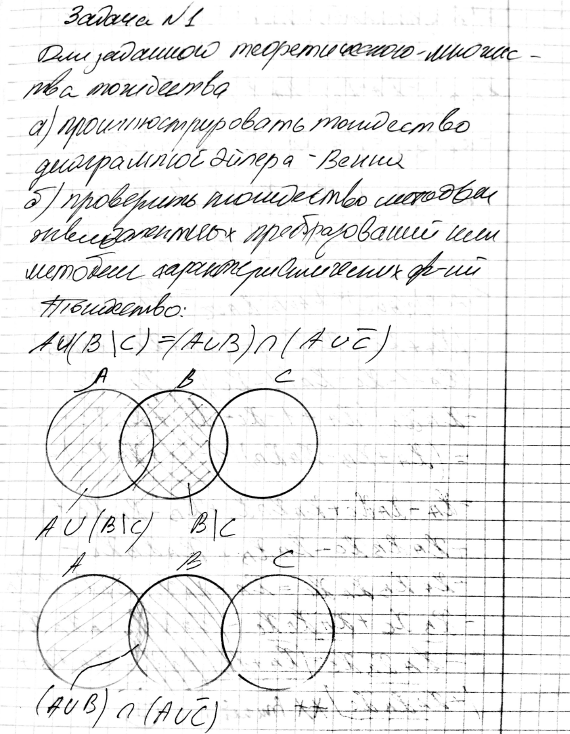 Задача №1
Для заданного теоретического-множес-
тва тождества
а) проиллюстрировать тождество
диаграммой Эйлера - Венна
б) проверить тождество методом
эквивалентных преобразований или
методом характеристических ф-ий
Тождество:
A∪(B\C)=(A∪B)∩(A∪C̅)
A B C
A∪(B\C) B\C
A B C
(A∪B)∩(A∪C̅)